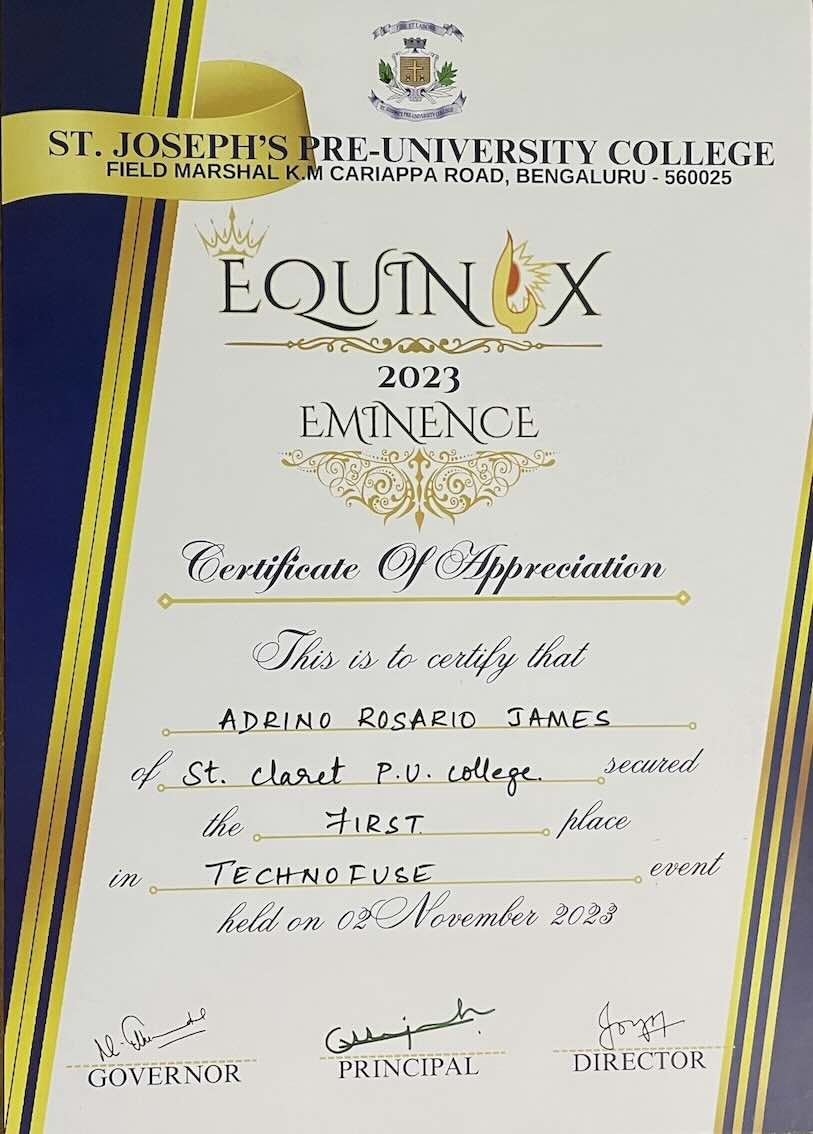 ST. JOSEPH'S PRE-UNIVERSITY COLLEGE
FIELD MARSHAL K.M CARIAPPA ROAD, BENGALURU - 560025
EQUINOX
2023
EMINENCE
Certificate Of Appreciation
This is to certify that
ADRINO ROSARIO JAMES
of St. Claret P.U. college. secured
the FIRST place
in TECHNOFUSE event
held on 02 November 2023
GOVERNOR PRINCIPAL DIRECTOR